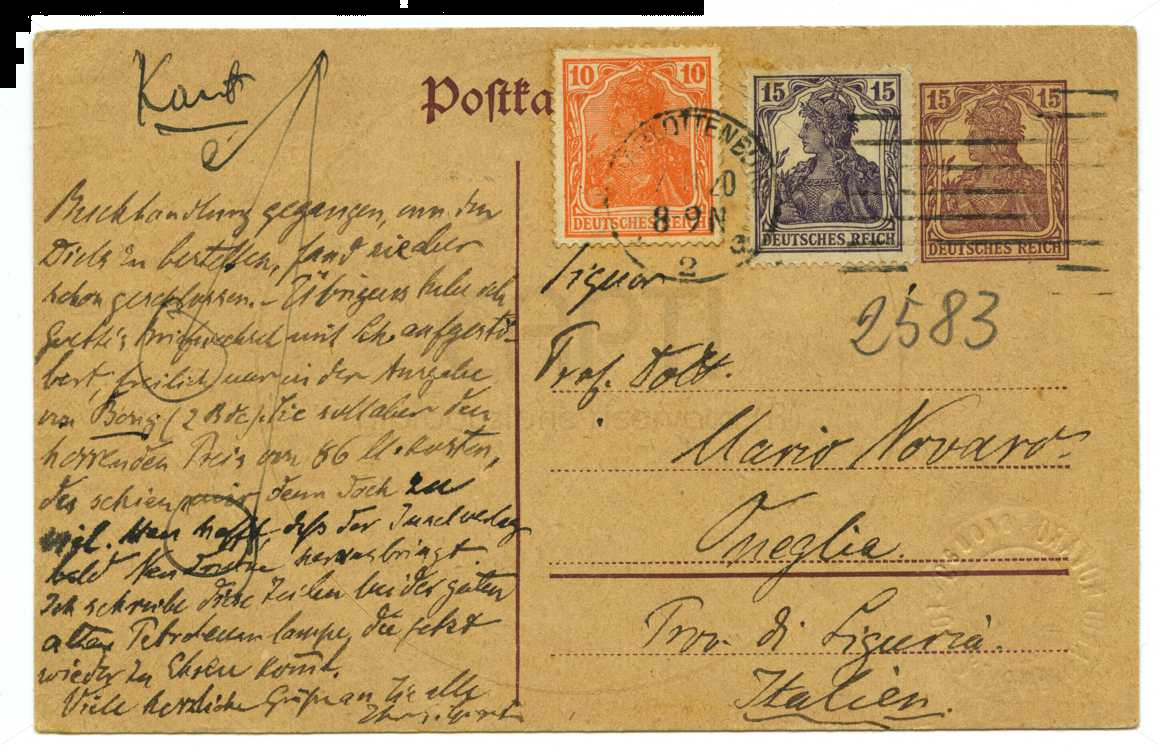 Kant
Postka
10 10
DEUTSCHES REICH
15 15
DEUTSCHES REICH
15 15
DEUTSCHES REICH
OTTENB
20
8-9N
2
2583
Buchhandlung gegangen, um den
Diels zu bestellen, fand sie aber
schon geschlossen. – Übrigens habe ich
Goethe's Briefwechsel mit Sch. aufgestö-
bert, freilich nur in der Ausgabe
von Bong (2 Bde). Sie soll aber den
horrenden Preis von 86 M. kosten,
das schien mir denn doch zu
viel. Man hofft, daß der Inselverlag
bald Neudrucke herausbringt
Ich schreibe diese Zeilen bei der guten
alten Petroleumlampe, die jetzt
wieder zu Ehren kommt.
Viele herzliche Grüße an Sie alle
Signor
Prof. Dott.
Mario Novaro
Oneglia.
Prov. di Liguria.
Italien.